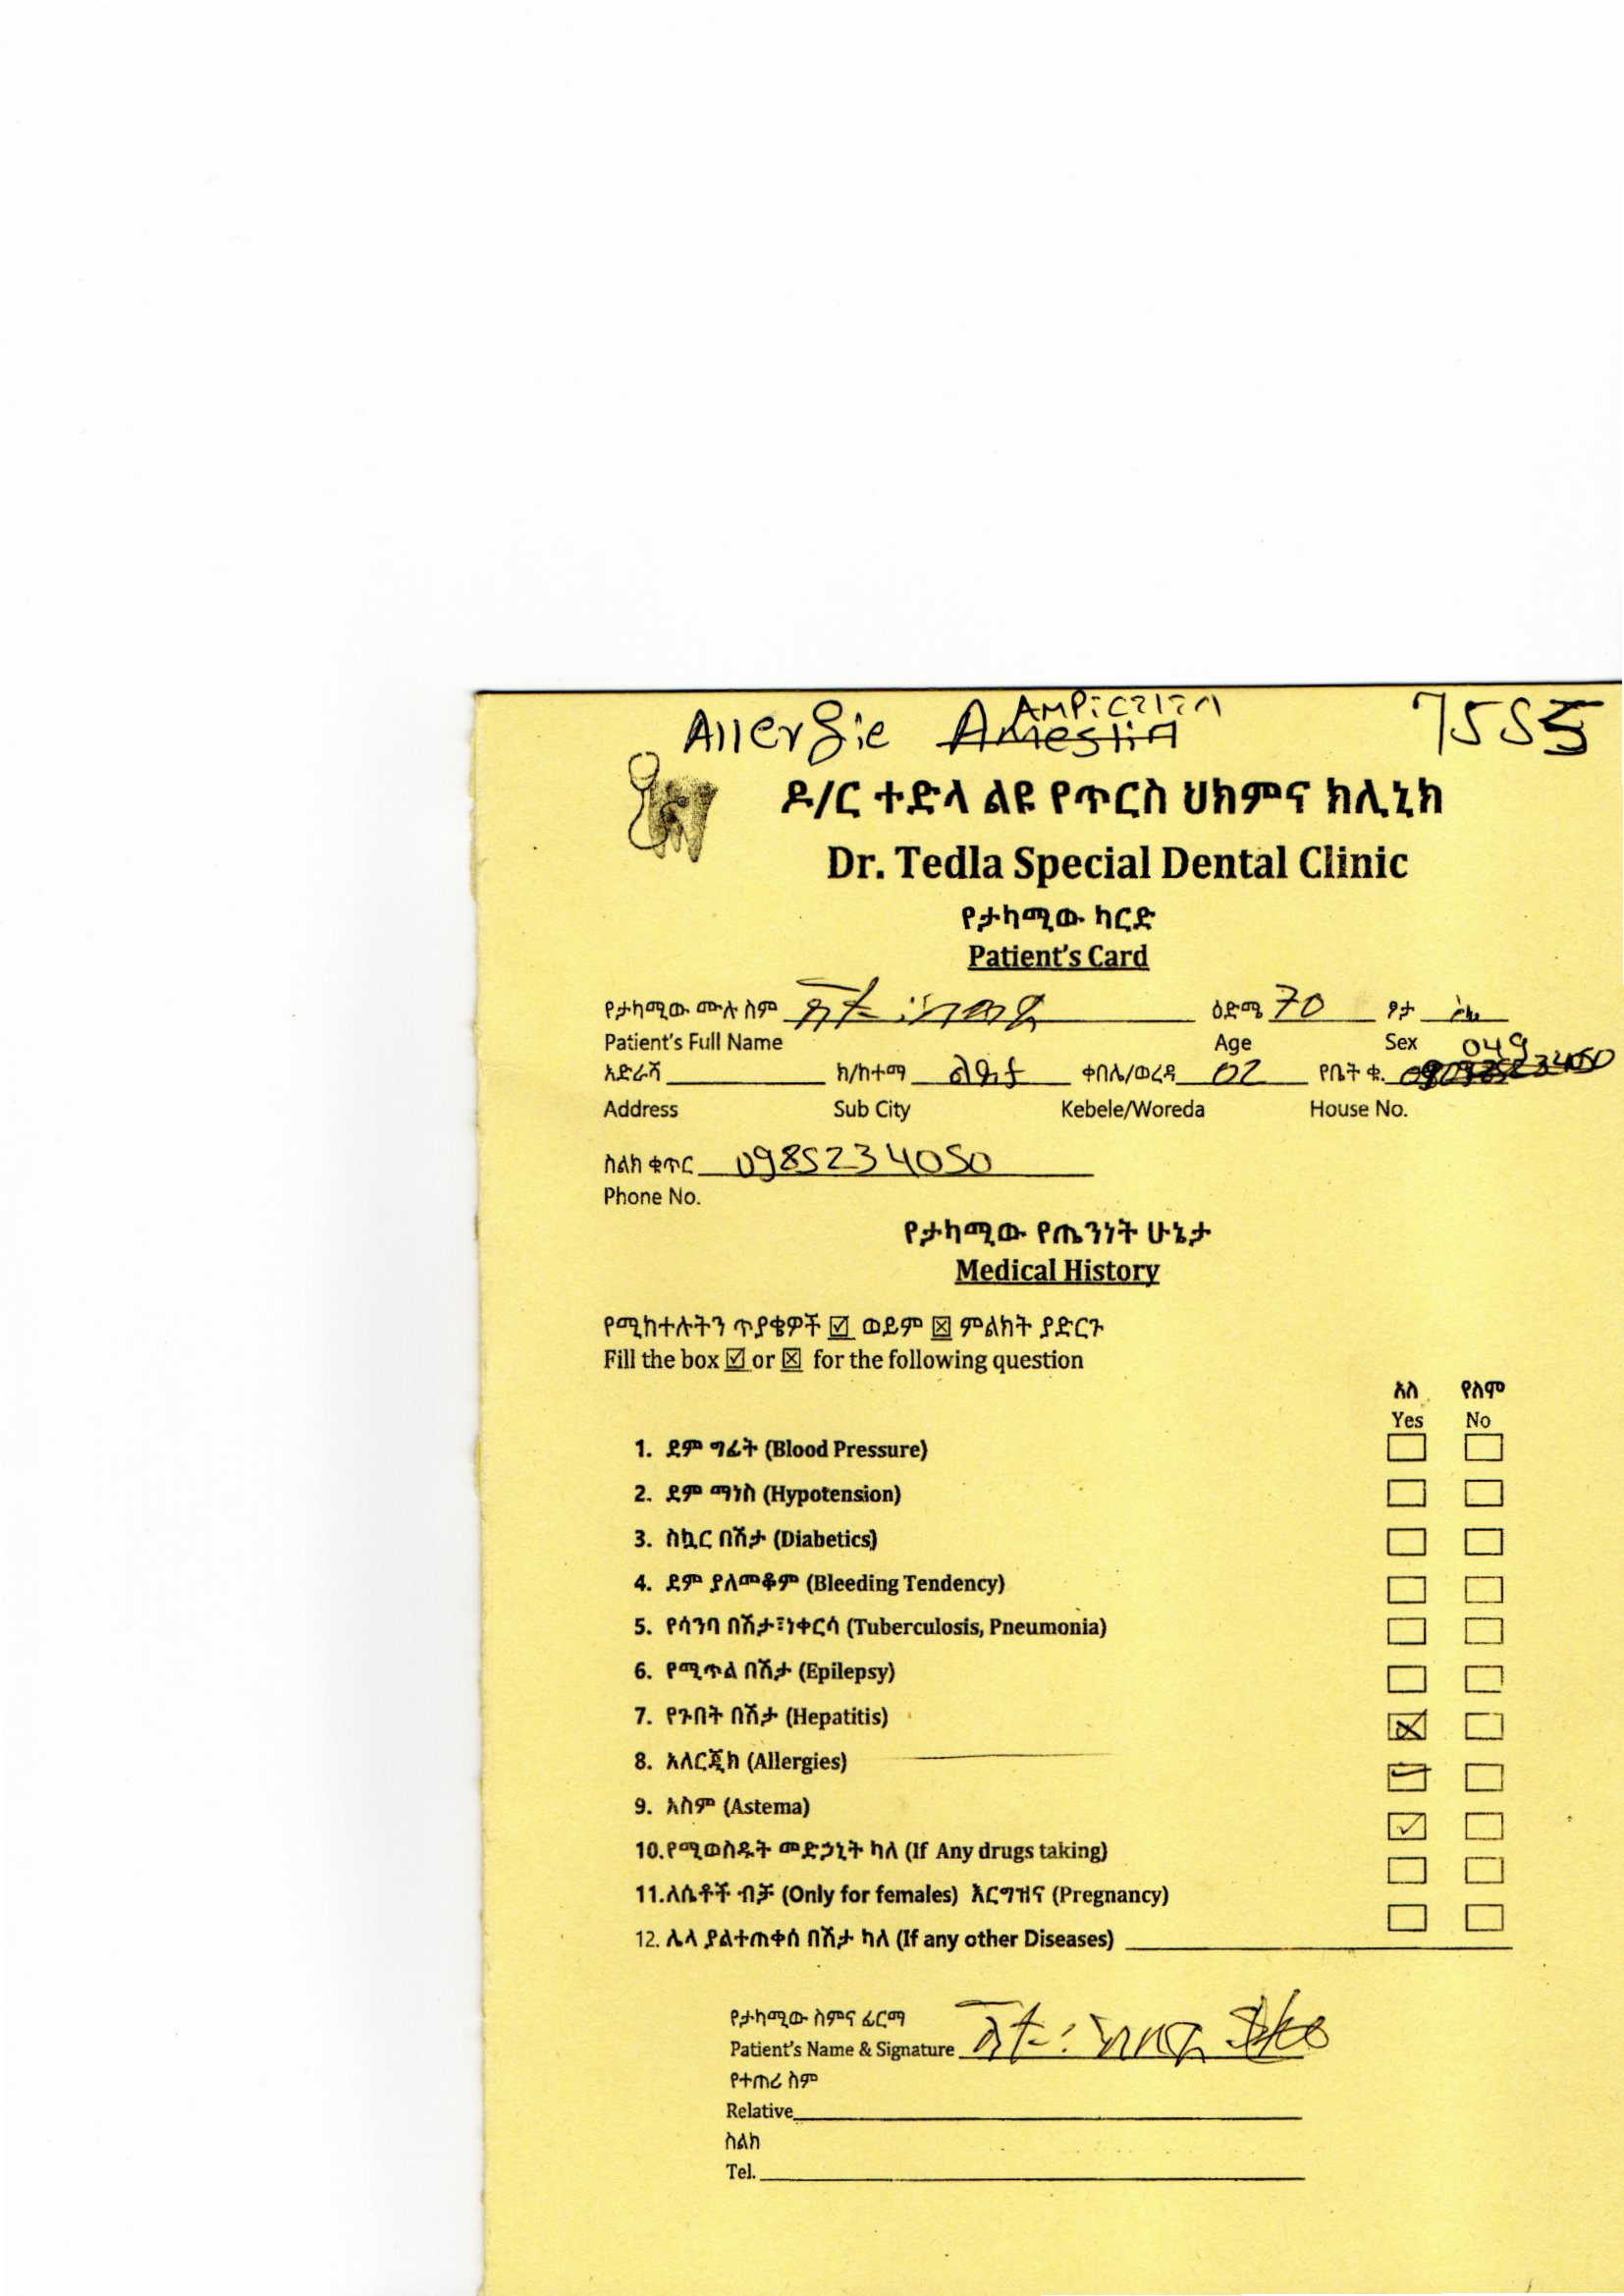 Allergie Ampicilin Anestia 7555
ዶ/ር ተድላ ልዩ የጥርስ ህክምና ክሊኒክ
Dr. Tedla Special Dental Clinic
የታካሚው ካርድ
Patient's Card
የታካሚው ሙሉ ስም ዕድሜ 70 ፆታ
Patient's Full Name Age Sex
አድራሻ ክ/ከተማ ልደታ ቀበሌ/ወረዳ 02 የቤት ቁ. 049
Address Sub City Kebele/Woreda House No.
ስልክ ቁጥር 0985234050
Phone No.
የታካሚው የጤንነት ሁኔታ
Medical History
የሚከተሉትን ጥያቄዎች ☑ ወይም ☒ ምልክት ያድርጉ
Fill the box ☑ or ☒ for the following question
አለ የለም
Yes No
1. ደም ግፊት (Blood Pressure)
2. ደም ማነስ (Hypotension)
3. ስኳር በሽታ (Diabetics)
4. ደም ያለመቆም (Bleeding Tendency)
5. የሳንባ በሽታ፣ነቀርሳ (Tuberculosis, Pneumonia)
6. የሚጥል በሽታ (Epilepsy)
7. የጉበት በሽታ (Hepatitis)
8. አለርጂክ (Allergies)
9. አስም (Astema)
10.የሚወስዱት መድኃኒት ካለ (If Any drugs taking)
11.ለሴቶች ብቻ (Only for females) እርግዝና (Pregnancy)
12. ሌላ ያልተጠቀሰ በሽታ ካለ (If any other Diseases)
የታካሚው ስምና ፊርማ
Patient's Name & Signature
የተጠሪ ስም
Relative
ስልክ
Tel.